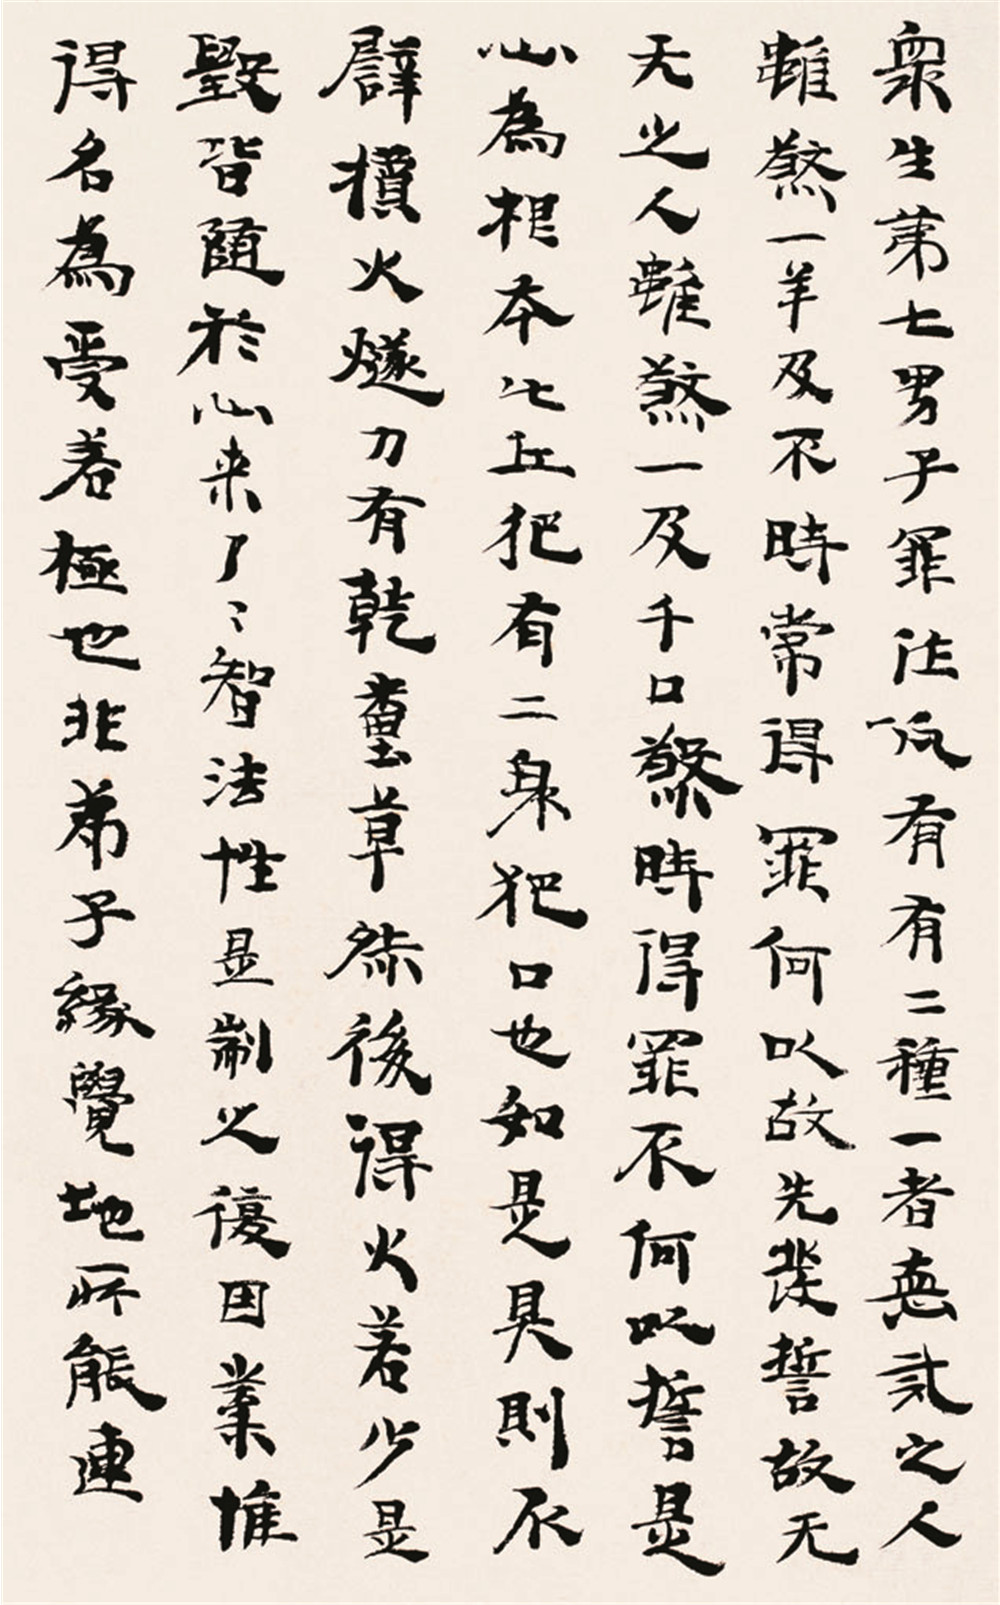 衆生苐七男子罪法仮有有二種一者悪戒之人
雖煞一羊及不時常得罪何以故先發誓故无
无之人雖煞一及千口煞時得罪不何以誓是
心為根本比丘犯有二身犯口也如是具則不
辟攢火燧刀有乾薹草然後得火若少是
毀皆随於心来了〻智法性是制之優因業惟
得名為受若極也非弟子緣覺地所能連